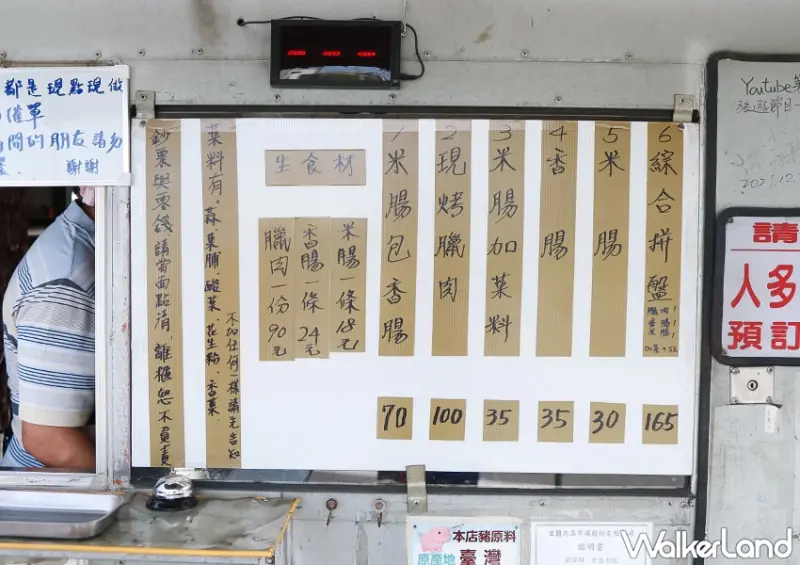 都是現點現做
催單
間的朋友請勿
謝謝
鈔票與零錢請當面點清,離櫃恕不負責
菜料有、蒜、菜脯、酸菜、花生粉、香菜
不加任何一樣請先告知
生食材
臘肉一份90元
香腸一條24元
米腸一條18元
1米腸包香腸
70
2現烤臘肉
100
3米腸加菜料
35
4香腸
35
5米腸
30
6綜合拼盤
165
Youtube
請
人多
預訂
本店豬原料
原產地 臺灣
證明書
WalkerLand